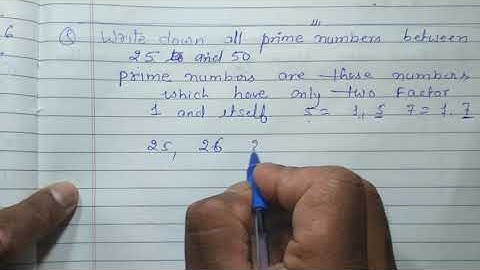 6
⑧ Write down all prime numbers between
25 to and 50
prime numbers are those numbers
which have only two factor
1 and itself 5 = 1, 5 7 = 1, 7
25, 26 2